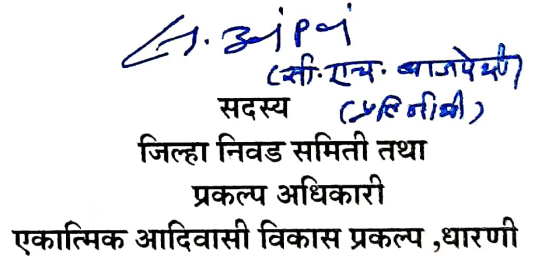 (सी. एच. बाजपेयी)
सदस्य (प्रतिनीधी)
जिल्हा निवड समिती तथा
प्रकल्प अधिकारी
एकात्मिक आदिवासी विकास प्रकल्प ,धारणी